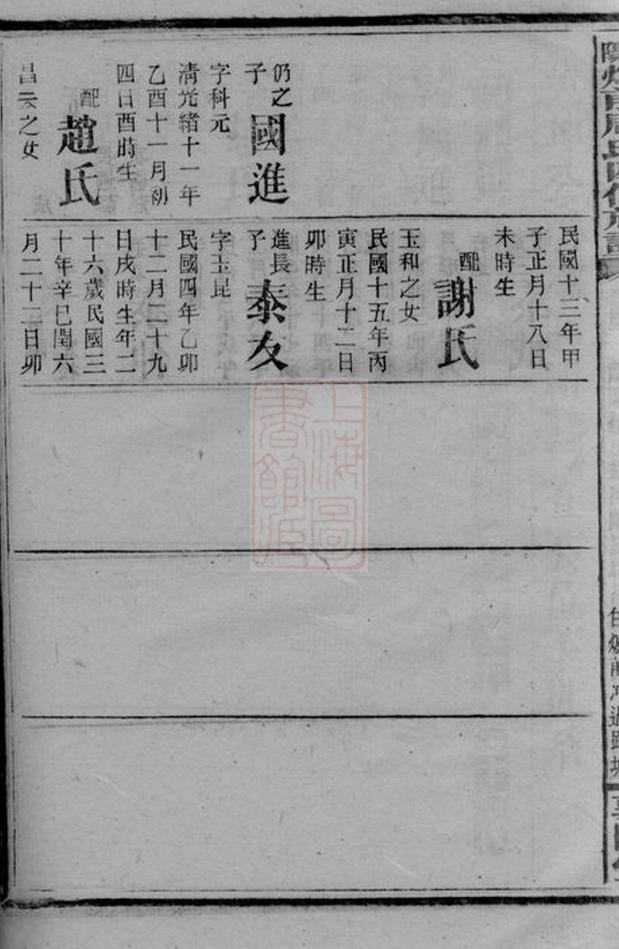 仍之子
國進
字科元
清光緒十一年
乙酉十一月初
四日酉時生
配
趙氏
昌云之女
民國十三年甲
子正月十八日
未時生
配
謝氏
玉和之女
民國十五年丙
寅正月十二日
卯時生
進長子
泰友
字玉昆
民國四年乙卯
十二月二十九
日戌時生年二
十六歲民國三
十年辛巳閏六
月二十二日卯
上海圖書館藏